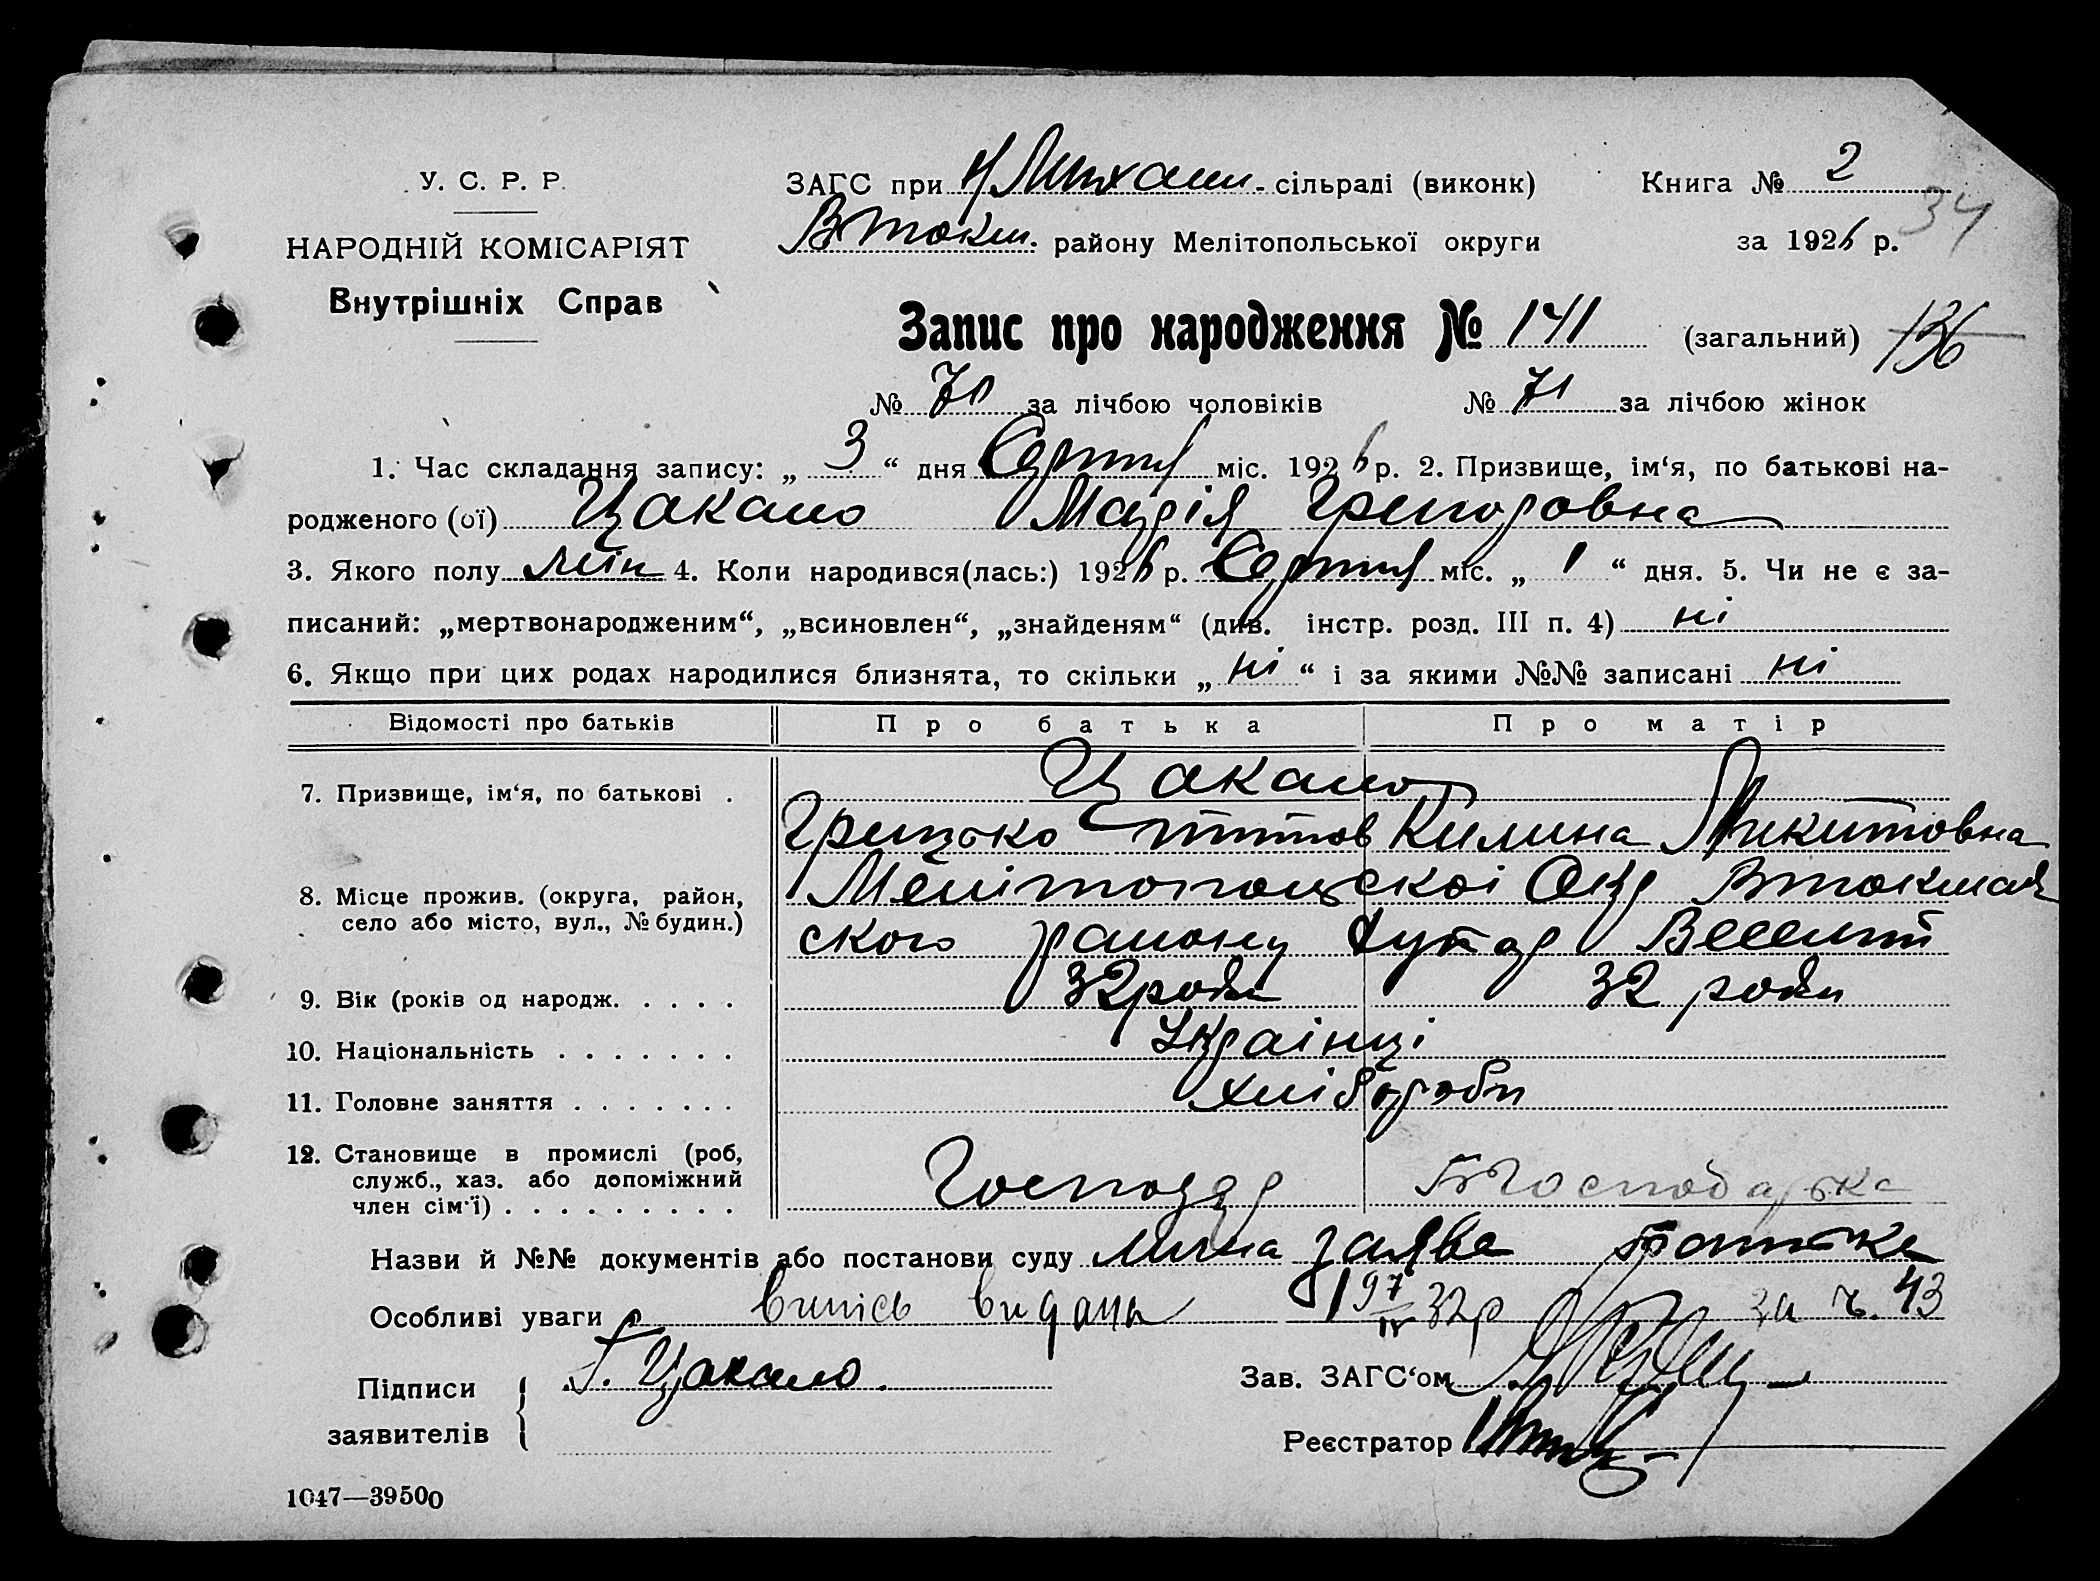 У. С. Р. Р.
НАРОДНІЙ КОМІСАРІЯТ
Внутрішніх Справ
ЗАГС при Н Михайл. сільраді (виконк)
В Токм. району Мелітопольської округи
Книга № 2
34
за 1926 р.
Запис про народження № 141 (загальний) 136
№ за лічбою чоловіків № 71 за лічбою жінок
1. Час складання запису: „ 3 “ дня Серпня міс. 1926 р. 2. Призвище, ім‘я, по батькові на-
родженого (ої) Цакало Марія Григоровна
3. Якого полу жін 4. Коли народився(лась:) 1926 р. Серпня міс. „ 1 “ дня. 5. Чи не є за-
писаний: „мертвонародженим“, „всиновлен“, „знайденям“ (див. інстр. розд. III п. 4) ні
6. Якщо при цих родах народилися близнята, то скільки „ ні “ і за якими №№ записані ні
Відомості про батьків Про батька Про матір
7. Призвище, ім‘я, по батькові . Цакало
Грицько Титов Килина Микитовна
8. Місце прожив. (округа, район, село або місто, вул., № будин.) Мелітопольскоі Окр Втокмак
ского району Хутор Веселий
9. Вік (років од народж. . . . . 32 роки 32 роки
10. Національність . . . . . . . Украінці
11. Головне заняття . . . . . . . хлібороби
12. Становище в промислі (роб, служб., хаз. або допоміжний член сім‘ї) . . . . . . . . . Господар Господарька
Назви й №№ документів або постанови суду Лична заява батька
Особливі уваги випісь видана 32р за ч. 43
Підписи заявителів Г. Цакало.
Зав. ЗАГС‘ом
Реєстратор
1047—39500